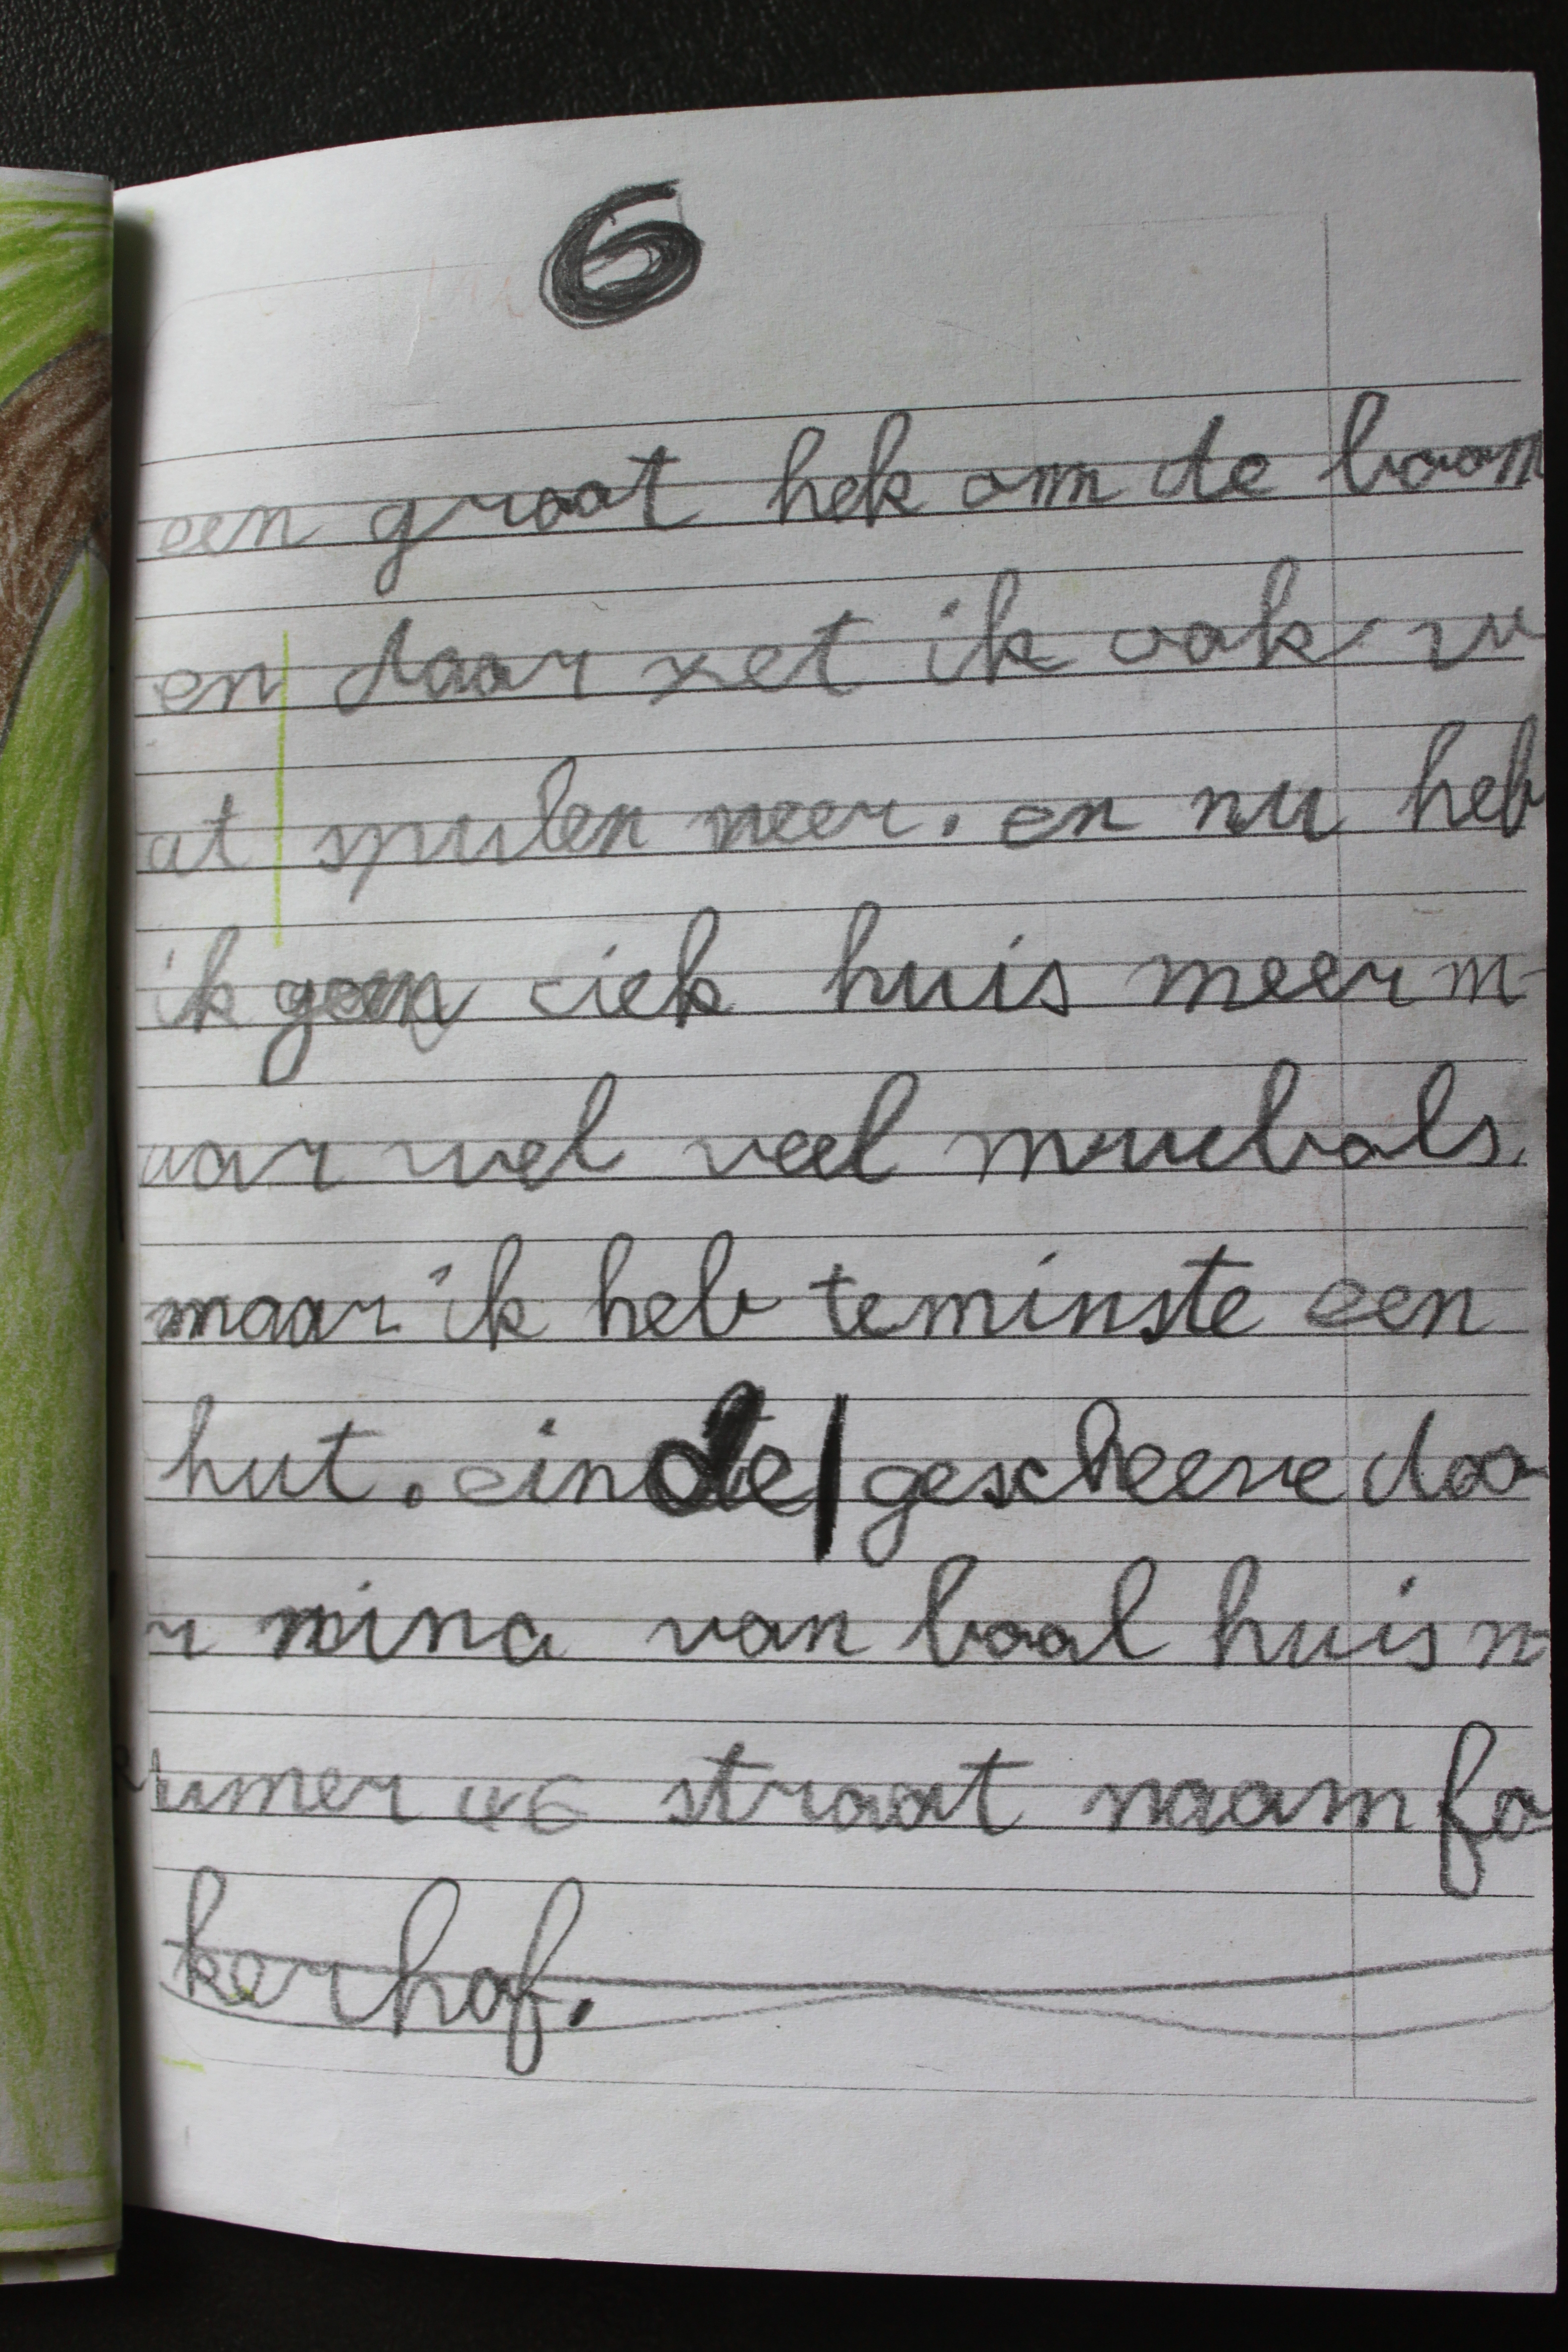 6
een groot hek om de boom
en daar zet ik ook w
at spulen neer. en nu heb
ik geen ciek huis meer m
aar wel veel muebols.
maar ik heb teminste een
hut. einde gescheeve doo
r mina van baal huis n
umer 46 straat naam fo
kerhof.